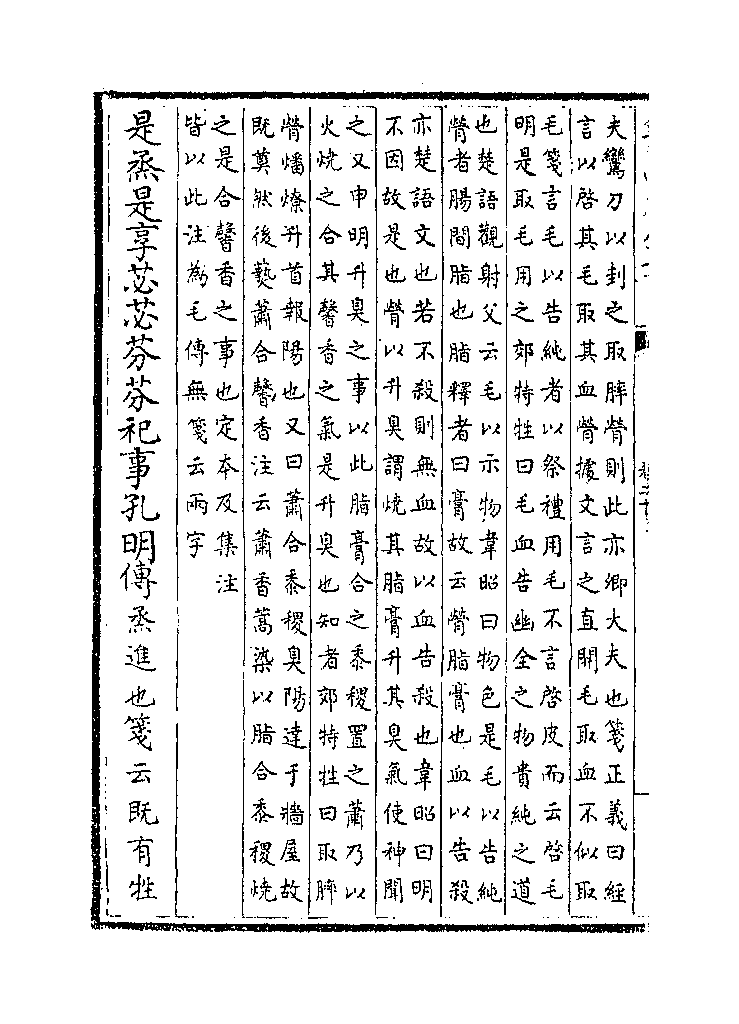 夫鸞刀以刲之取膟膋則此亦卿大夫也箋正義曰經
言以啓其毛取其血膋據文言之直開毛取血不似取
毛箋言毛以告純者以祭禮用毛不言啓皮而云啓毛
明是取毛用之郊特牲曰毛血告幽全之物貴純之道
也楚語觀射父云毛以示物韋昭曰物色是毛以告純
膋者腸間脂也脂釋者曰膏故云膋脂膏也血以告殺
亦楚語文也若不殺則無血故以血告殺也韋昭曰明
不因故是也膋以升臭謂燒其脂膏升其臭氣使神聞
之又申明升臭之事以此脂膏合之黍稷置之蕭乃以
火燒之合其馨香之氣是升臭也知者郊特牲曰取膟
膋燔燎升首報陽也又曰蕭合黍稷臭陽達于牆屋故
既奠然後爇蕭合馨香注云蕭香蒿染以脂合黍稷燒
之是合馨香之事也定本及集注
皆以此注為毛傳無箋云兩字
是烝是享苾苾芬芬祀事孔明傳烝進也箋云既有牲